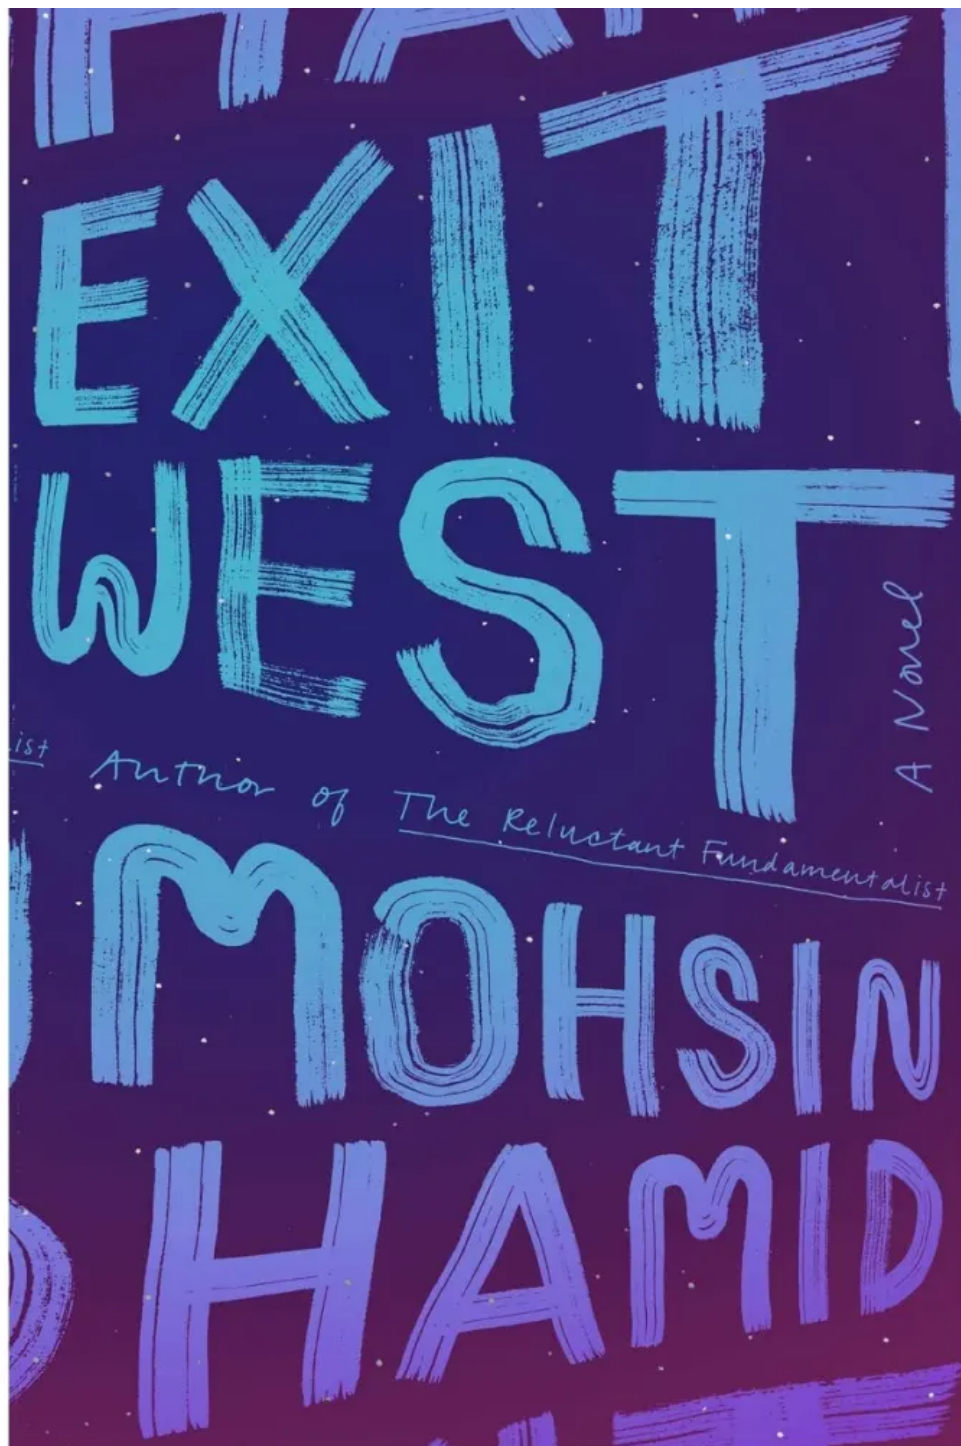 HAM
EXIT
WEST
A Novel
ist
Author of The Reluctant Fundamentalist
MOHSIN
HAMID